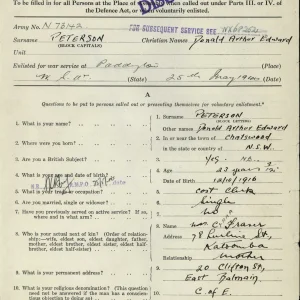 To be filled in for all Persons at the Place of
when called out under Parts III. or IV. of
the Defence Act, or
voluntarily enlisted.
Army No. N 78142
FOR SUBSEQUENT SERVICE SEE
Surname PETERSON
(BLOCK CAPITALS)
Christian Names Donald Arthur Edward
Unit
Enlisted for war service at Paddington
(Place)
(State)
25th May 1940
(Date)
A
Questions to be put to persons called out or presenting themselves for voluntary enlistment.
1. What is your name?
1. Surname PETERSON
(BLOCK LETTERS)
Other names Donald Arthur Edward
2. Where were you born?
2. In or near the town of Chatswood
in the state or country of N.S.W.
3. Are you a British Subject?
3. Yes
4. What is your age and date of birth?
4. Age 23 years
Date of Birth 12/10/1916
5. What is your trade or occupation?
5. Cost Clerk
6. Are you married, single or widower?
6. Single
7. Have you previously served on active service? If so, where and in what arm?
7. No
8. Who is your actual next of kin? (Order of relationship:—wife, eldest son, eldest daughter, father, mother, eldest brother, eldest sister, eldest half-brother, eldest half-sister)
8. Name Mrs C. Fraser
Address 78 St,
Katoomba
Relationship Mother
9. What is your permanent address?
9. 20 Clifton St,
East Balmain
10. What is your religious denomination? (This question need not be answered if the man has a conscientious objection to doing so)
10. C. of E.